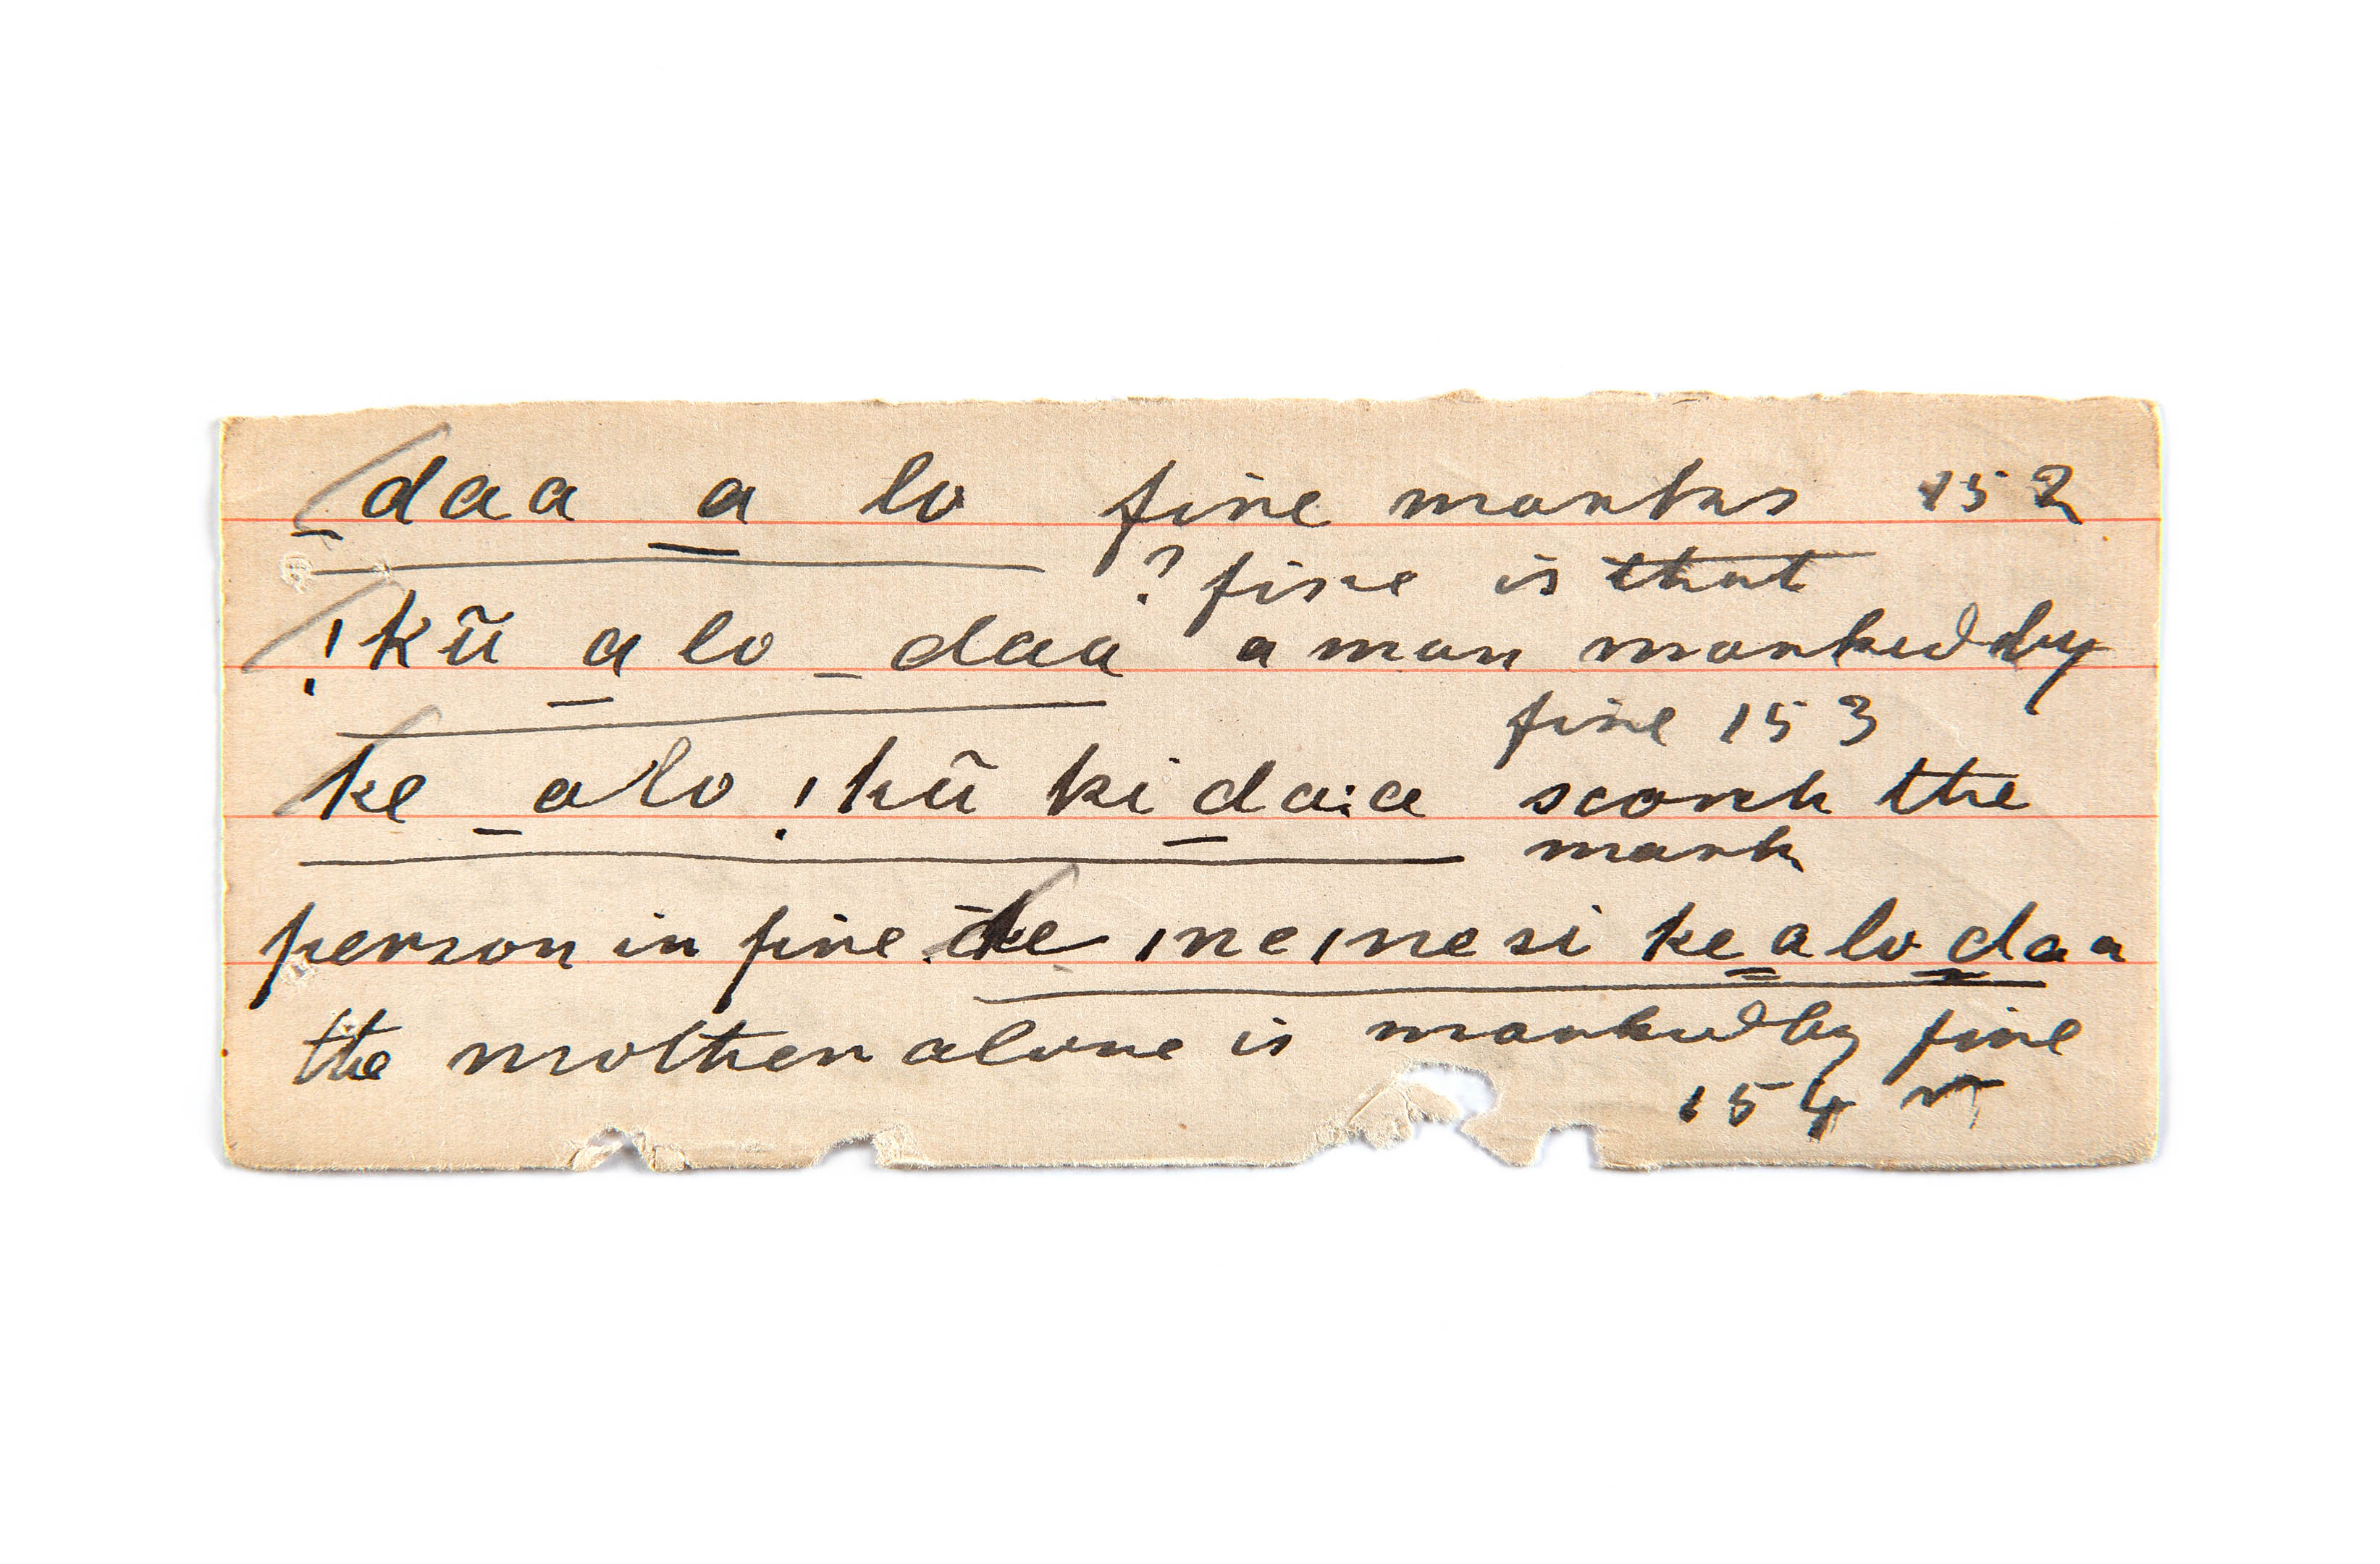 _daa _a lo fire marks 152
? fire is that
!kũ _a lo _daa a man marked by
fire 153
ke _a lo !kũ ki _da:a scorch the
mark
person in fire ǀneǀne si ke a lo daa
the mother alone is marked by fire
154 v